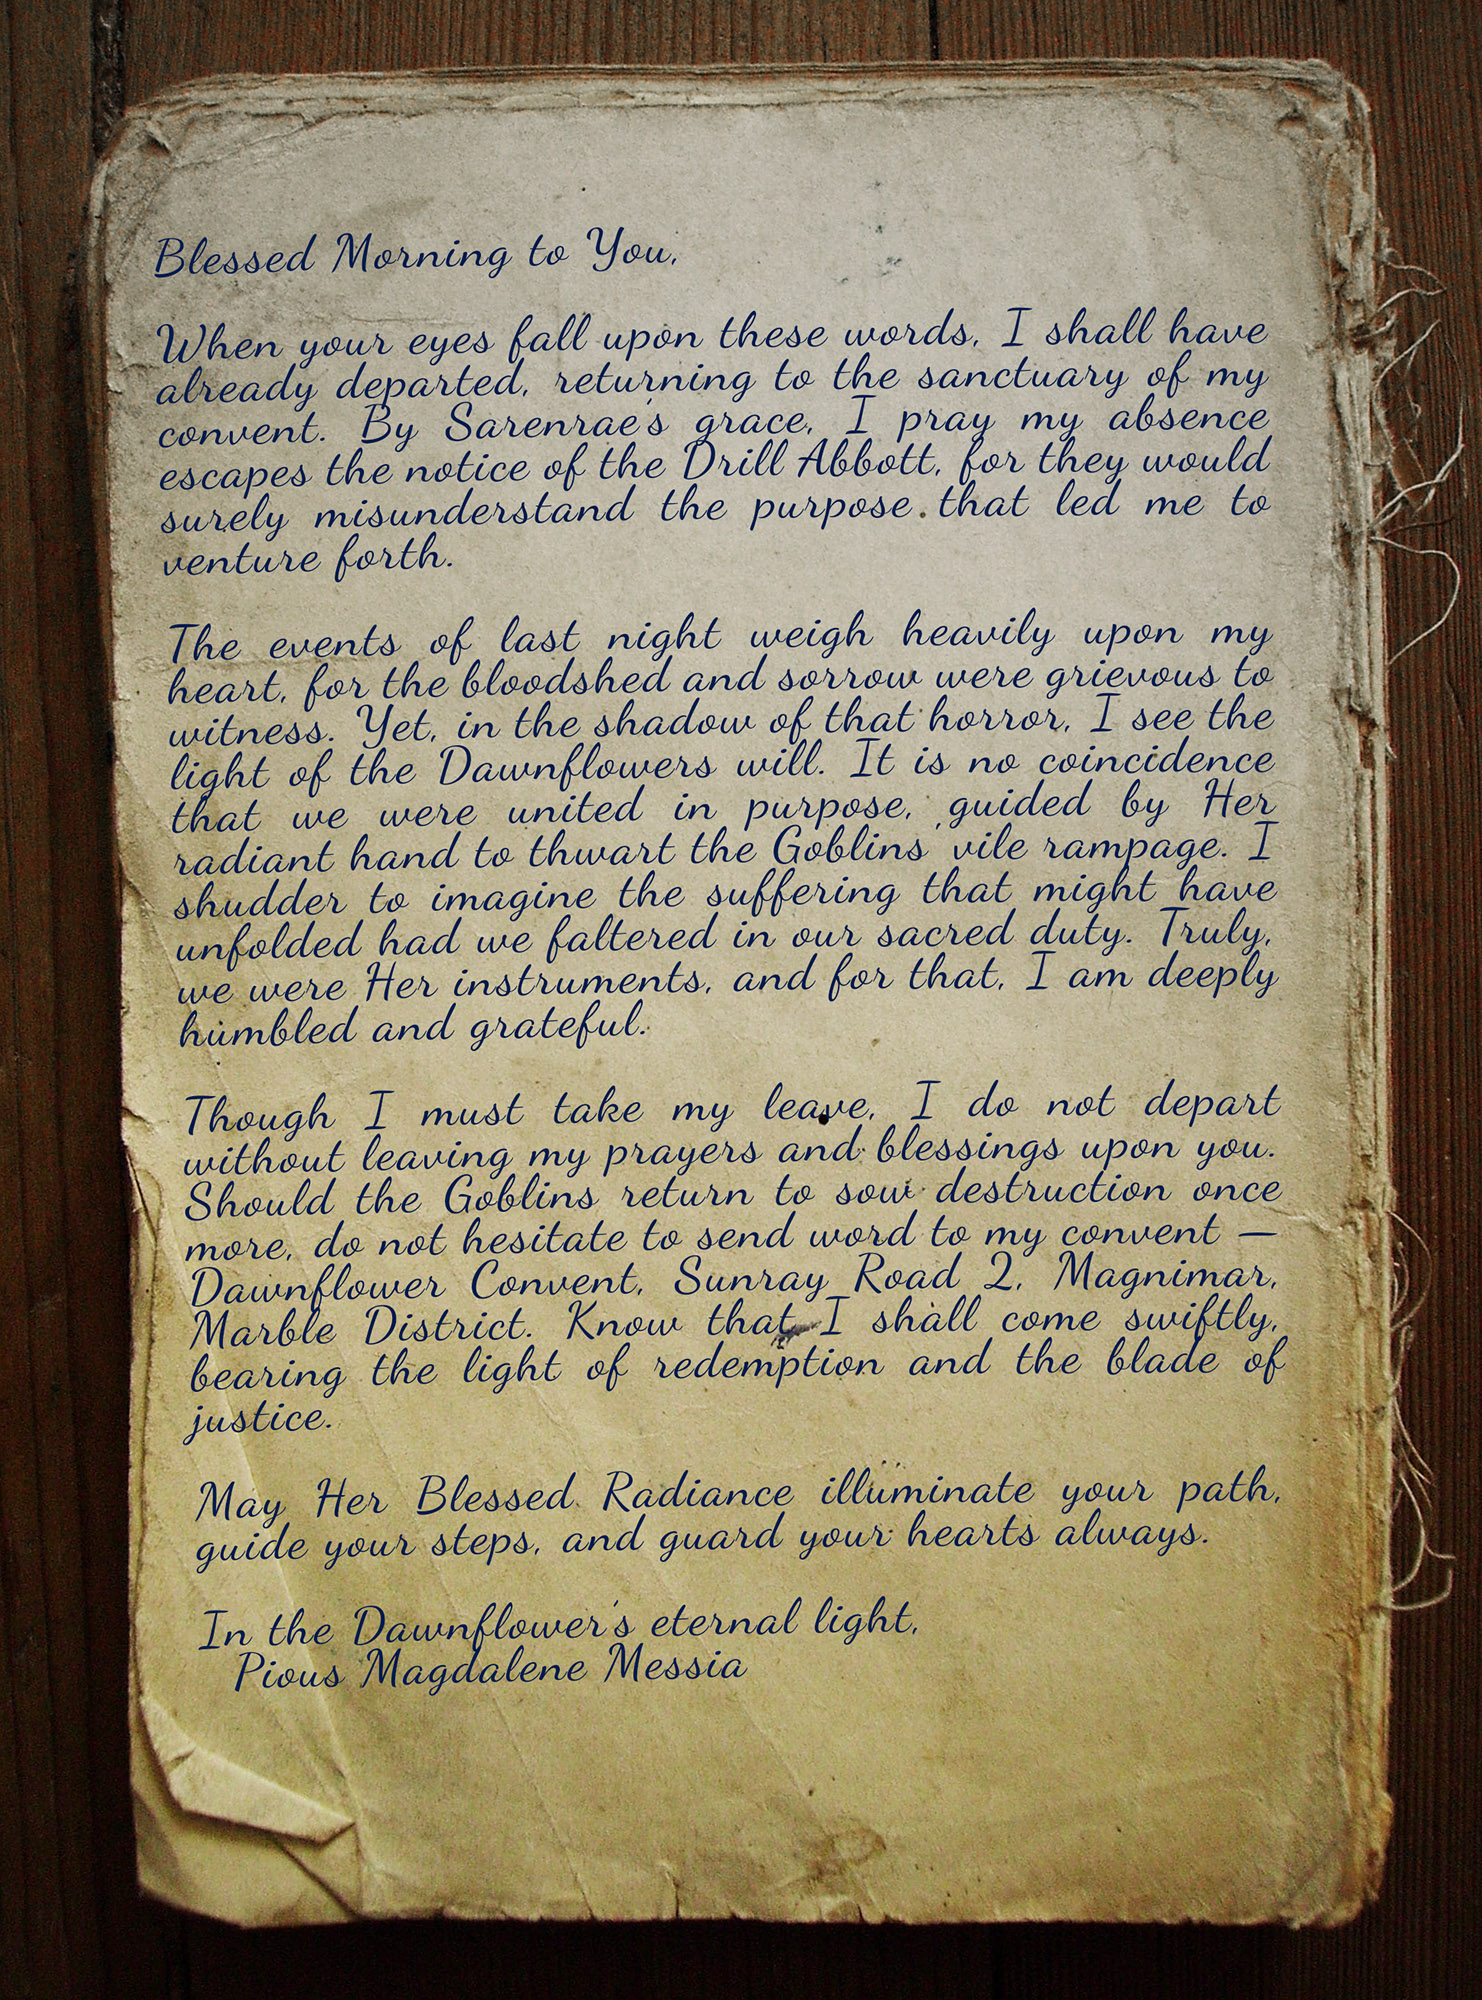 Blessed Morning to You,
When your eyes fall upon these words, I shall have
already departed, returning to the sanctuary of my
convent. By Sarenrae's grace, I pray my absence
escapes the notice of the Drill Abbott, for they would
surely misunderstand the purpose that led me to
venture forth.
The events of last night weigh heavily upon my
heart, for the bloodshed and sorrow were grievous to
witness. Yet, in the shadow of that horror, I see the
light of the Dawnflowers will. It is no coincidence
that we were united in purpose, guided by Her
radiant hand to thwart the Goblins' vile rampage. I
shudder to imagine the suffering that might have
unfolded had we faltered in our sacred duty. Truly,
we were Her instruments, and for that, I am deeply
humbled and grateful.
Though I must take my leave, I do not depart
without leaving my prayers and blessings upon you.
Should the Goblins return to sow destruction once
more, do not hesitate to send word to my convent —
Dawnflower Convent, Sunray Road 2, Magnimar,
Marble District. Know that I shall come swiftly,
bearing the light of redemption and the blade of
justice.
May Her Blessed Radiance illuminate your path,
guide your steps, and guard your hearts always.
In the Dawnflower's eternal light,
Pious Magdalene Messia